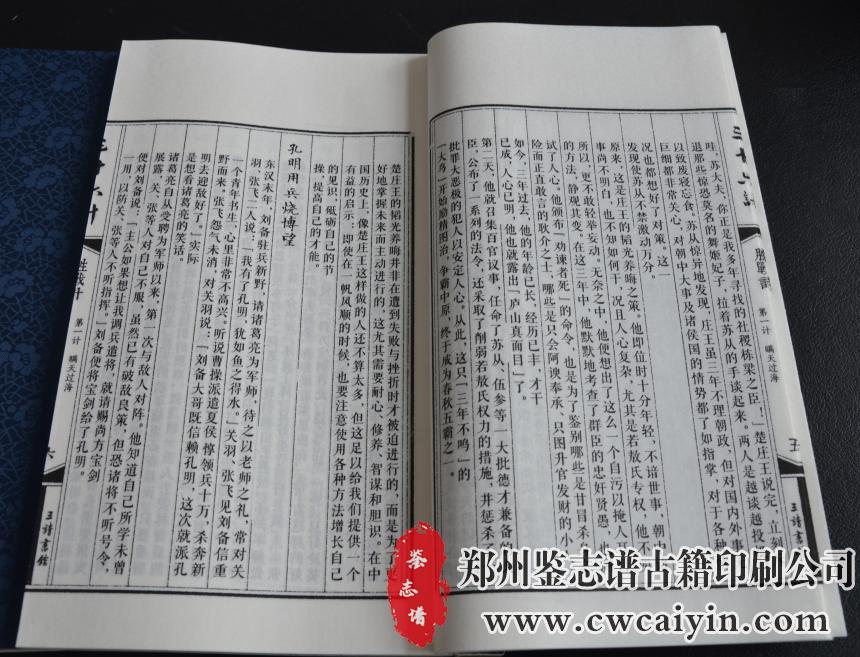 哇，苏大夫，你正是我多年寻找的社稷栋梁之臣！”楚庄王说完，立刻
退那些惊恐莫名的舞姬妃子，拉着苏从的手谈起来。两人是越谈越投
以致废寝忘食。苏从惊异地发现，庄王虽三年不理朝政，但对国内外事
巨细都非常关心，对朝中大事及诸侯国的情势都了如指掌，对于各种
况也都想好了对策。这一
发现使苏从不禁激动万分。
原来，这是庄王的韬光养晦之策。他即位时十分年轻，不谙世事，朝中
事尚不明白，也不知如何干，况且人心复杂，尤其是若敖氏专权，他不
所以，更不敢轻举妄动，无奈之中，他便想出了这么一个自污以掩人耳
的方法，静观其变。在这三年中，他默默地考查了群臣的忠奸贤愚，
试了人心。他颁布“劝谏者死”的命令，也是为了鉴别哪些是甘冒杀
险而正直敢言的耿介之士，哪些是只会阿谀奉承、只图升官发财的小
如今，三年过去，他的年龄已长，经历已丰，才干
已成，人心已明，他也就露出“庐山真面目”了。
第二天，他就召集百官议事，任命了苏从、伍参等一大批德才兼备的
臣，公布了一系列的法令，还采取了削弱若敖氏权力的措施，并惩杀
批罪大恶极的犯人以安定人心。从此，这只“三年不鸣”的
“大鸟”开始励精图治，争霸中原，终于成为春秋五霸之一。
第一计 瞒天过海
五
玉祷书馆
楚庄王的韬光养晦并非在遭到失败与挫折时才被迫进行的，而是为了
好地掌握未来而主动进行的，这尤其需要耐心、修养、智谋和胆识。在中
国历史上，像楚庄王这样做的人还不算太多，但这足以给我们提供一个
有益的启示：即使在一帆风顺的时候，也要注意使用各种方法增长自己
的见识，砥砺自己的节
操，提高自己的才能。
孔明用兵烧博望
东汉末年，刘备驻兵新野，请诸葛亮为军师，待之以老师之礼，常对关
羽、张飞二人说：“我有了孔明，犹如鱼之得水。”关羽、张飞见刘备信重
一个青年书生，心里非常不高兴。听说曹操派遣夏侯惇领兵十万，杀奔新
野而来，张飞怨气未消，对关羽说：“刘备大哥既信赖孔明，这次就派孔
明去迎敌好了。”实际
上是想看诸葛亮的笑话。
诸葛亮自从受聘为军师以来，第一次与敌人对阵。他知道自己所学未曾
展露，关、张等人对自己不服，虽然已有破敌良策，但恐诸将不听号令，
便对刘备说：“主公如果想让我调兵遣将，就请赐尚方宝剑
一用，以防关、张等人不听指挥。”刘备便将宝剑给了孔明。
胜战计
第一计 瞒天过海
六
鉴志谱
郑州鉴志谱古籍印刷公司
www.cwcaiyin.com